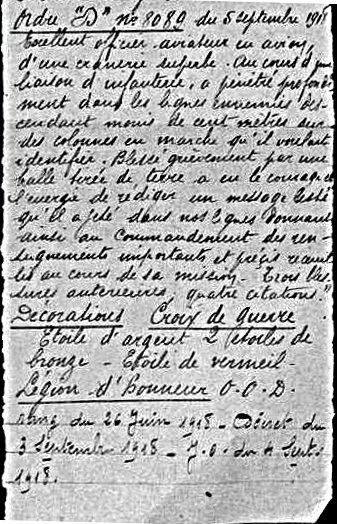 Ordre "D" no 8089 du 5 septembre 1918
Excellent officier aviateur en avion,
d'une cranerie superbe. Au cours d'une
liaison d'infanterie, a pénétré profondé
ment dans les lignes ennemies des-
cendant moins de cent mètres sur
des colonnes en marche qu'il voulait
identifier. Blessé grièvement par une
balle tirée de terre a eu le courage et
l'énergie de rédiger un message lesté
qu'il a jeté dans nos lignes donnant
ainsi au Commandement des ren-
seignements importants et précis recueil
lis au cours de sa mission. Trois bles
sures antérieures, quatre citations."
Décorations Croix de guerre
Etoile d'argent 2 étoiles de
bronze - Etoile de vermeil -
Légion d'honneur O.O.D.
rang du 26 Juin 1918 - Décret du
3 Septembre 1918 - J.O. du 4 Sept.
1918.